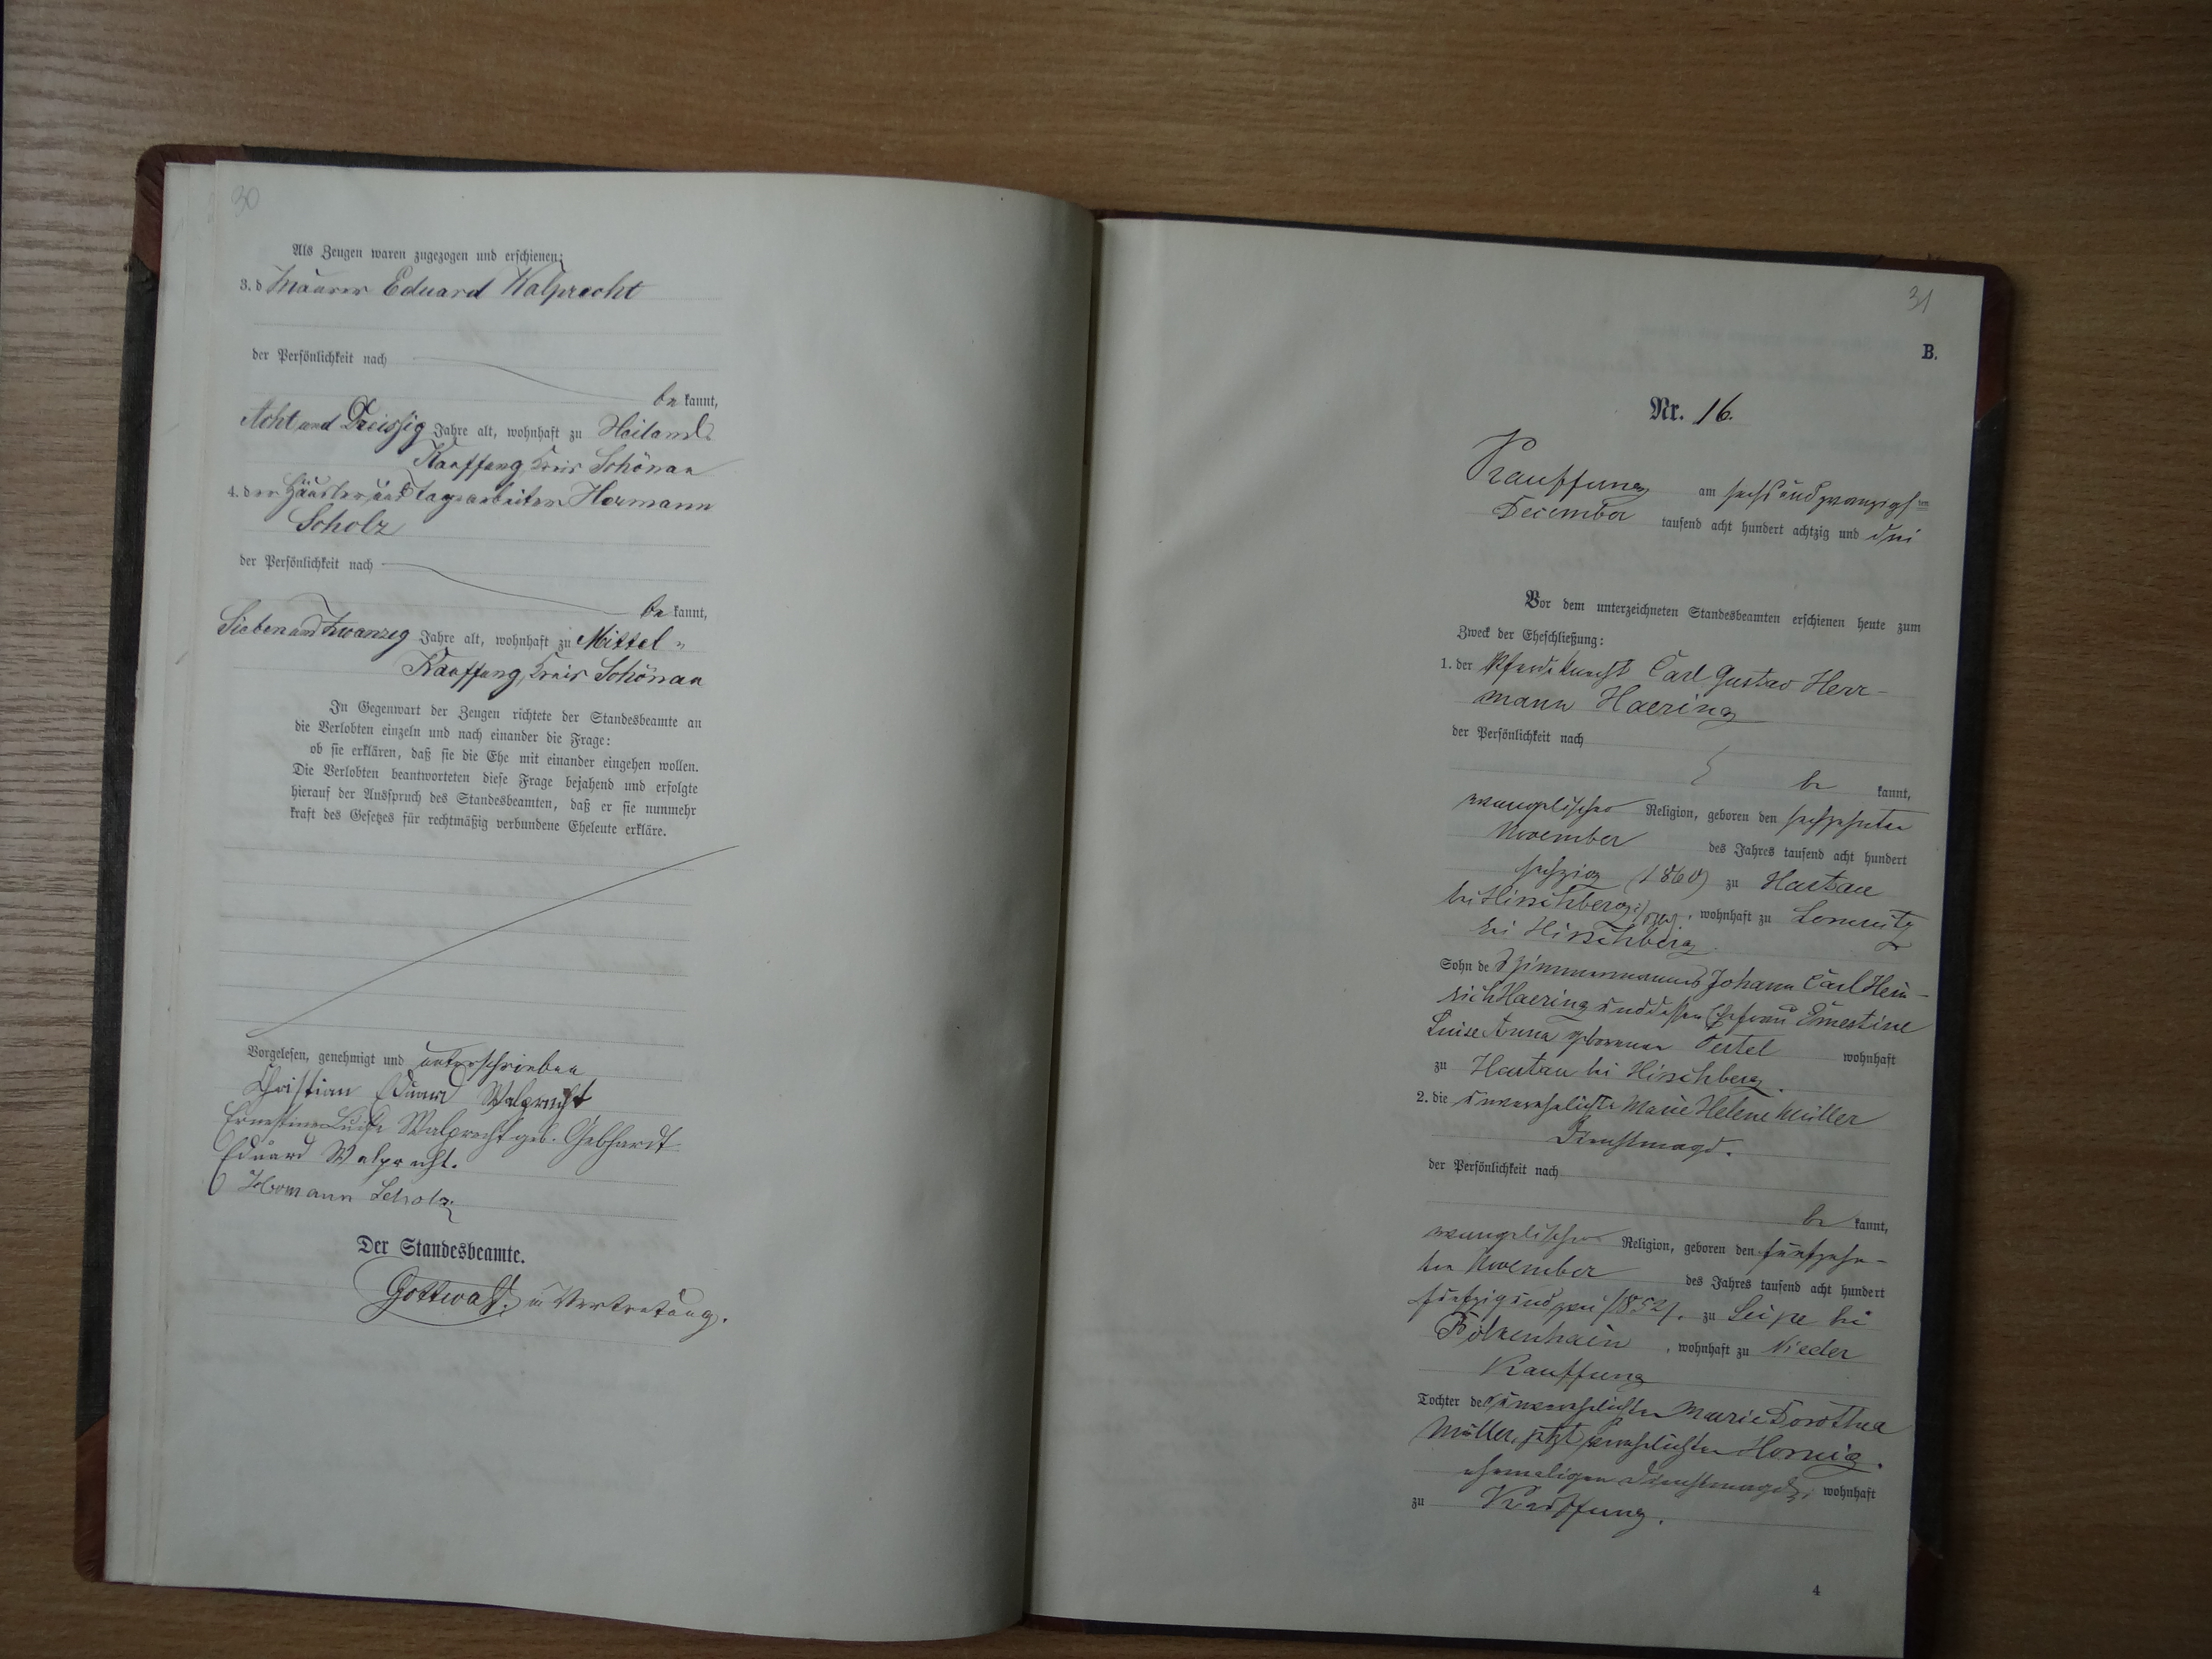 30
Als Zeugen waren zugezogen und erschienen:
3. d Maurer Eduard Walprecht
der Persönlichkeit nach
be kannt,
Acht und Dreissig Jahre alt, wohnhaft zu Heiland
Kauffung, Kreis Schönau
4. der Häusler und Tagearbeiter Hermann
Scholz
der Persönlichkeit nach
be kannt,
Sieben und Zwanzig Jahre alt, wohnhaft zu Mittel-
Kauffung, Kreis Schönau
In Gegenwart der Zeugen richtete der Standesbeamte an
die Verlobten einzeln und nach einander die Frage:
ob sie erklären, daß sie die Ehe mit einander eingehen wollen.
Die Verlobten beantworteten diese Frage bejahend und erfolgte
hierauf der Ausspruch des Standesbeamten, daß er sie nunmehr
kraft des Gesetzes für rechtmäßig verbundene Eheleute erkläre.
Vorgelesen, genehmigt und unterschrieben
Christian Eduard Walprecht
Ernestine Luise Walprecht geb. Gebhardt
Eduard Walprecht.
Hermann Scholz
Der Standesbeamte.
Gottwald. in Vertretung.
31
B.
Nr. 16.
Kauffung am sechs und zwanzigsten
December tausend acht hundert achtzig und drei
Vor dem unterzeichneten Standesbeamten erschienen heute zum
Zweck der Eheschließung:
1. der Pferdeknecht Carl Gustav Herr-
mann Haering
der Persönlichkeit nach
be kannt,
evangelischer Religion, geboren den sechszehnten
November des Jahres tausend acht hundert
sechzig (1860) zu Hartau
bei Hirschberg, wohnhaft zu Lomnitz
bei Hirschberg
Sohn des Zimmermanns Johann Carl Hein-
rich Haering und dessen Ehefrau Ernestine
Luise Anna geborenen Oertel wohnhaft
zu Hartau bei Hirschberg.
2. die unverehelichte Marie Helene Müller
Dienstmagd.
der Persönlichkeit nach
be kannt,
evangelischer Religion, geboren den fünfzehn-
ten November des Jahres tausend acht hundert
fünfzig und zwei /1852/. zu Leipe bei
Bolkenhain, wohnhaft zu Nieder
Kauffung
Tochter der unverehelichten Marie Dorothea
Müller, jetzt verehelichten Hornig.
ehemaligen Dienstmagd, wohnhaft
zu Kauffung.
4